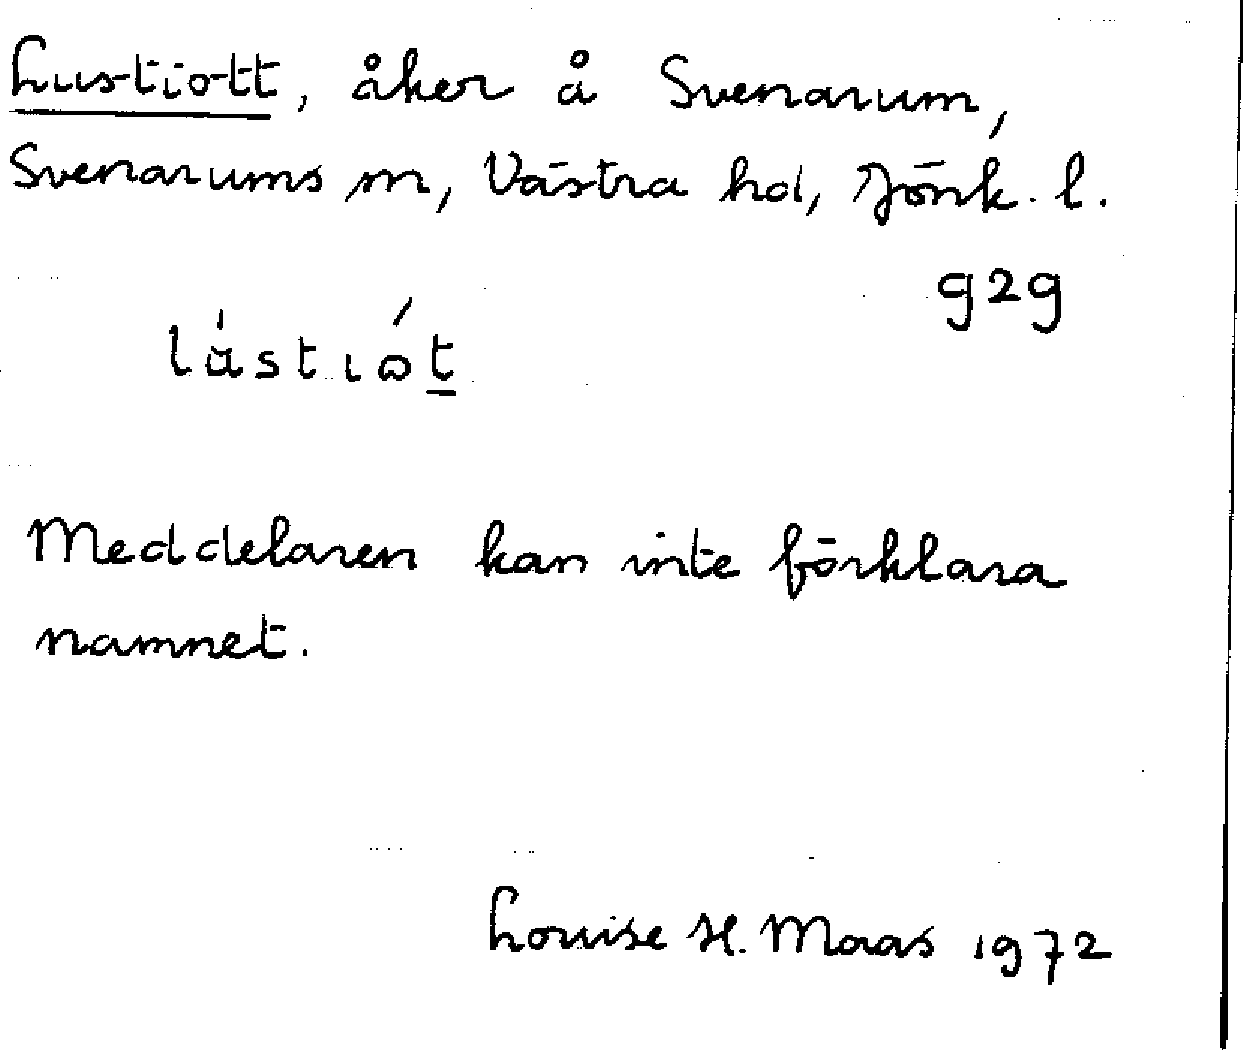 Lustiott, åker å Svenarum,
Svenarums sn, Västra hd, Jönk. l.
929
lústiót
Meddelaren kan inte förklara
namnet.
Louise H. Maas 1972